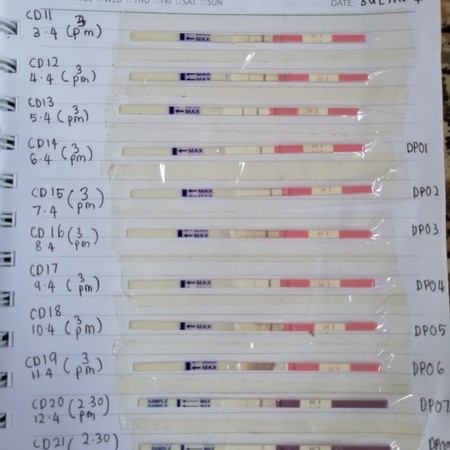 WED THU FRI SAT SUN
DATE:
CD11
3.4 (3 pm)
MAX
CD12
4.4 (3 pm)
MAX
CD13
5.4 (3 pm)
MAX
CD14
6.4 (3 pm)
MAX
DPO1
CD15
7.4 (3 pm)
MAX
DPO2
CD16
8.4 (3 pm)
MAX
DPO3
CD17
9.4 (3 pm)
MAX
DPO4
CD18
10.4 (3 pm)
MAX
DPO5
CD19
11.4 (3 pm)
MAX
DPO6
CD20 (2.30 pm)
12.4
SAMPLE
SAMPLE
MAX
DPO7
CD21 (2.30
MAX